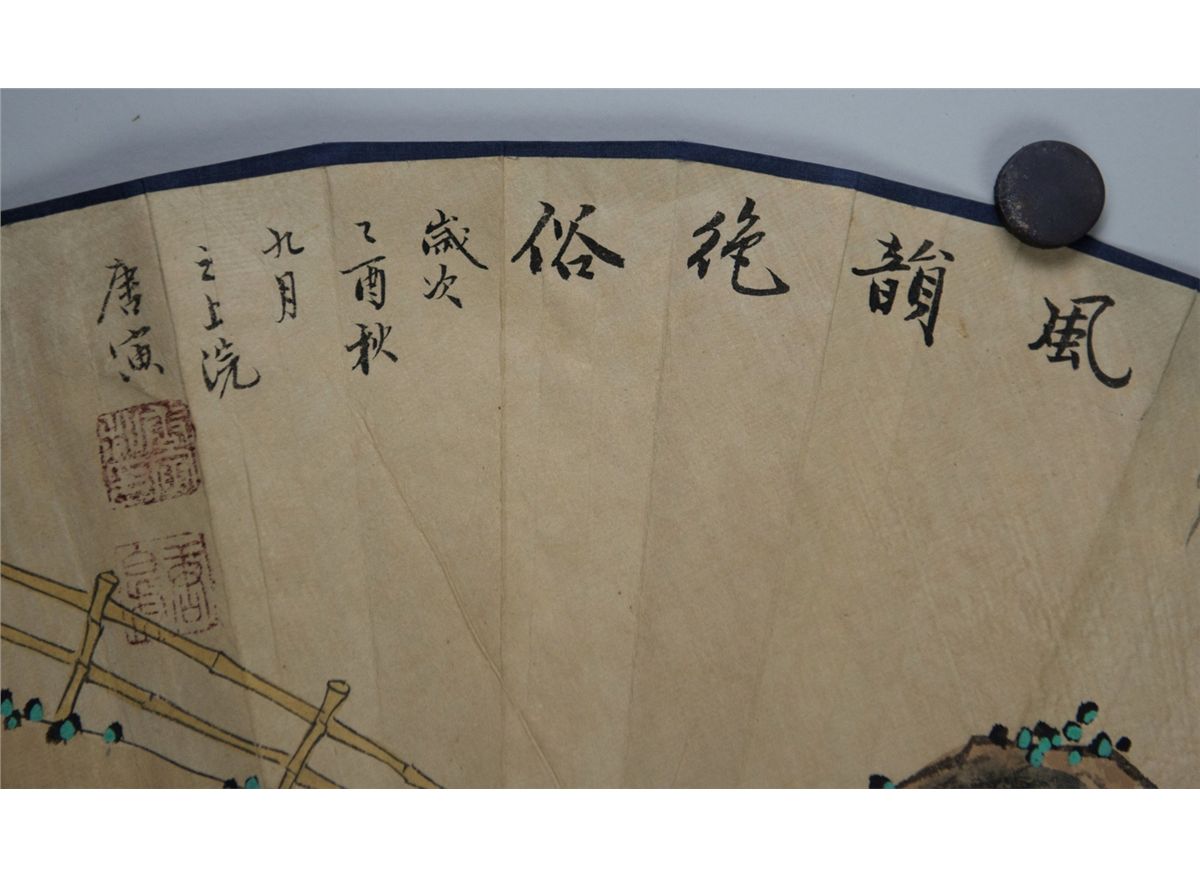 風韻絶俗
歲次
乙酉秋
九月
之上浣
唐寅